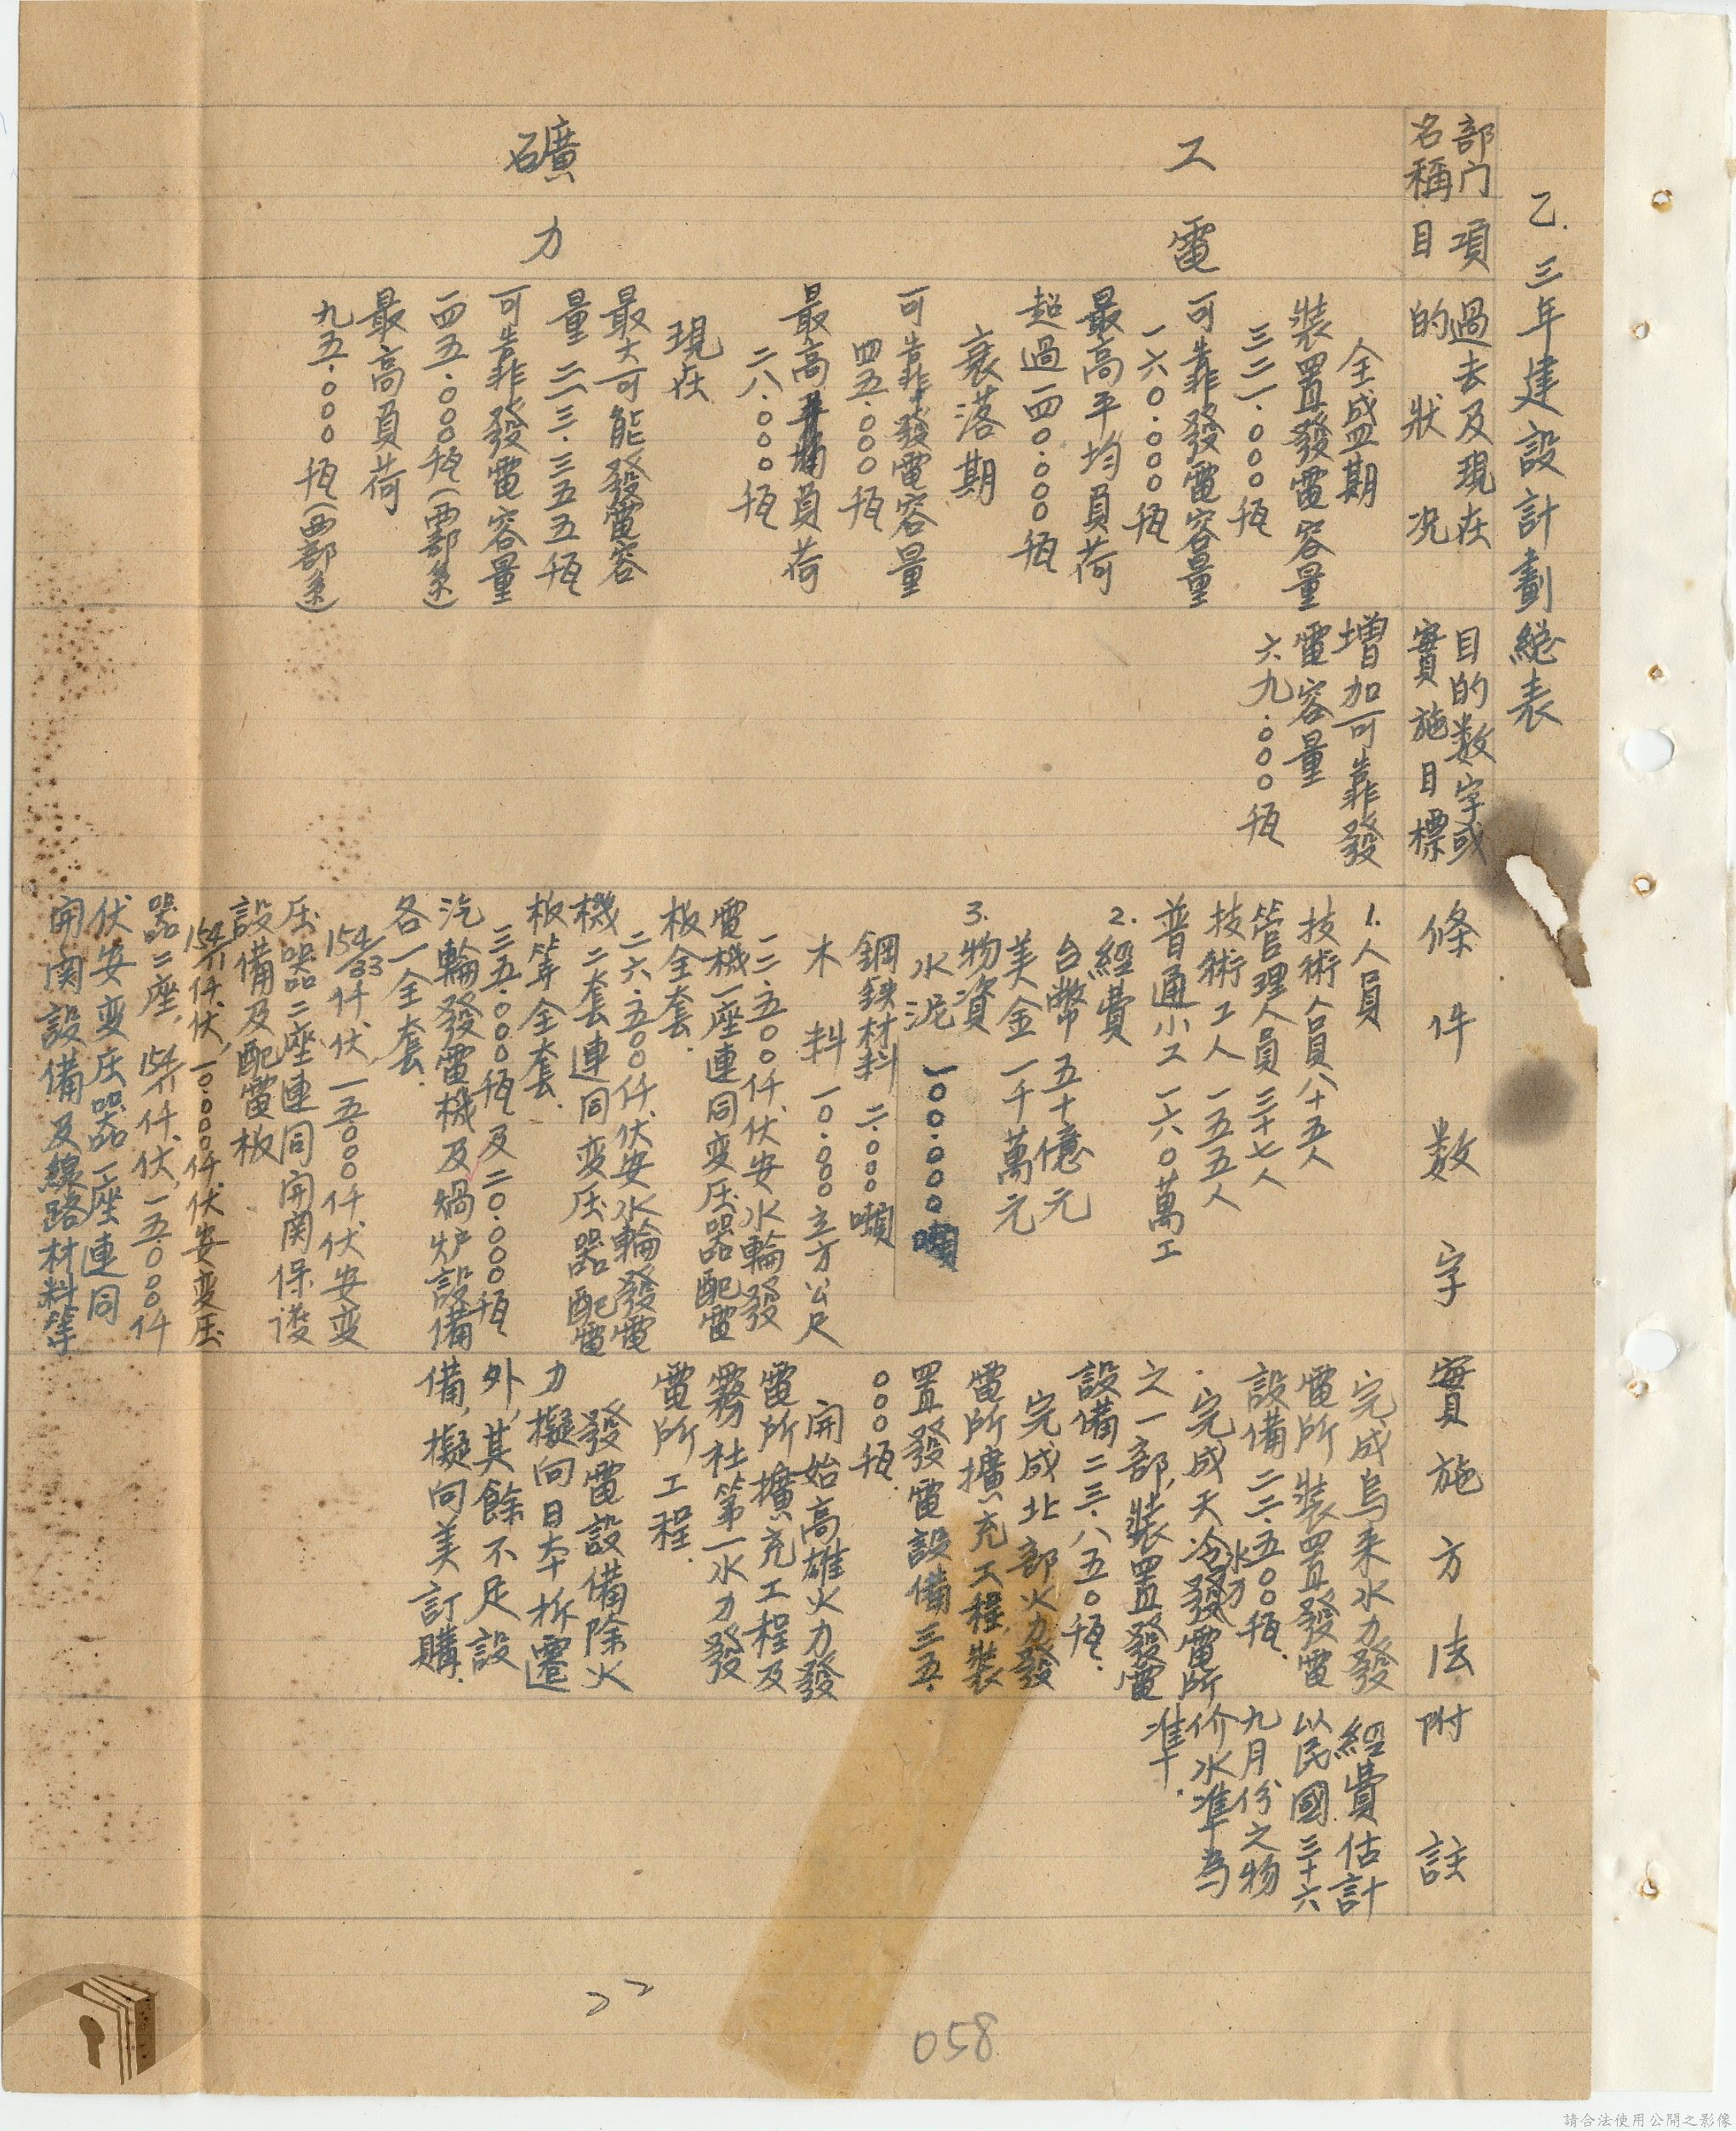 乙．三年建設計劃總表
部门名稱
項目
過去及現在的狀況
目的数字或實施目標
條件数字
實施方法
附註
工礦
電力
全盛期
裝置發電容量
三二一．〇〇〇瓩
可靠發電容量
一六〇．〇〇〇瓩
最高平均負荷
超過一四〇．〇〇〇瓩
衰落期
可靠發電容量
四五．〇〇〇瓩
最高負荷
二八．〇〇〇瓩
現在
最大可能發電容
量二一三．三五五瓩
可靠發電容量
一四五．〇〇〇瓩(西部系)
最高負荷
九五．〇〇〇瓩(西部系)
增加可靠發
電容量
六九．〇〇〇瓩
1.人員
技術人員八十五人
管理人員三十七人
技術工人一五五人
普通小工一六〇萬工
2.經費
台幣五十億元
美金一千萬元
3.物資
水泥一〇〇．〇〇〇噸
鋼鉄材料二．〇〇〇噸
木料一〇．〇〇〇立方公尺
二二．五〇〇仟伏安水輪發
電機一座連同变压器配電
板全套．
二六．五〇〇仟伏安水輪發電
機二套連同变压器配電
板等全套．
三五．〇〇〇瓩及二〇．〇〇〇瓩
汽輪發電機及焗炉設備
各一全套．
154/33仟伏，一五〇〇〇仟伏安变
压器二座連同開関保護
設備及配電板
154/11仟伏，一〇．〇〇〇仟伏安变压
器二座，154/11仟伏，一五〇〇〇仟
伏安变压器一座連同
開関設備及線路材料等
完成烏來水力發
電所裝置發電
設備二二．五〇〇瓩．
完成天冷水力發電所
之一部，裝置發電
設備二三．八五〇瓩．
完成北部火力發
電所擴充工程，裝
置發電設備三五．
〇〇〇瓩．
開始高雄火力發
電所擴充工程及
霧社第一水力發
電所工程．
發電設備除火
力擬向日本拆遷
外，其餘不足設
備，擬向美訂購．
經費估計
以民國三十六
九月份之物
价水準為
準．
058
請合法使用公開之影像